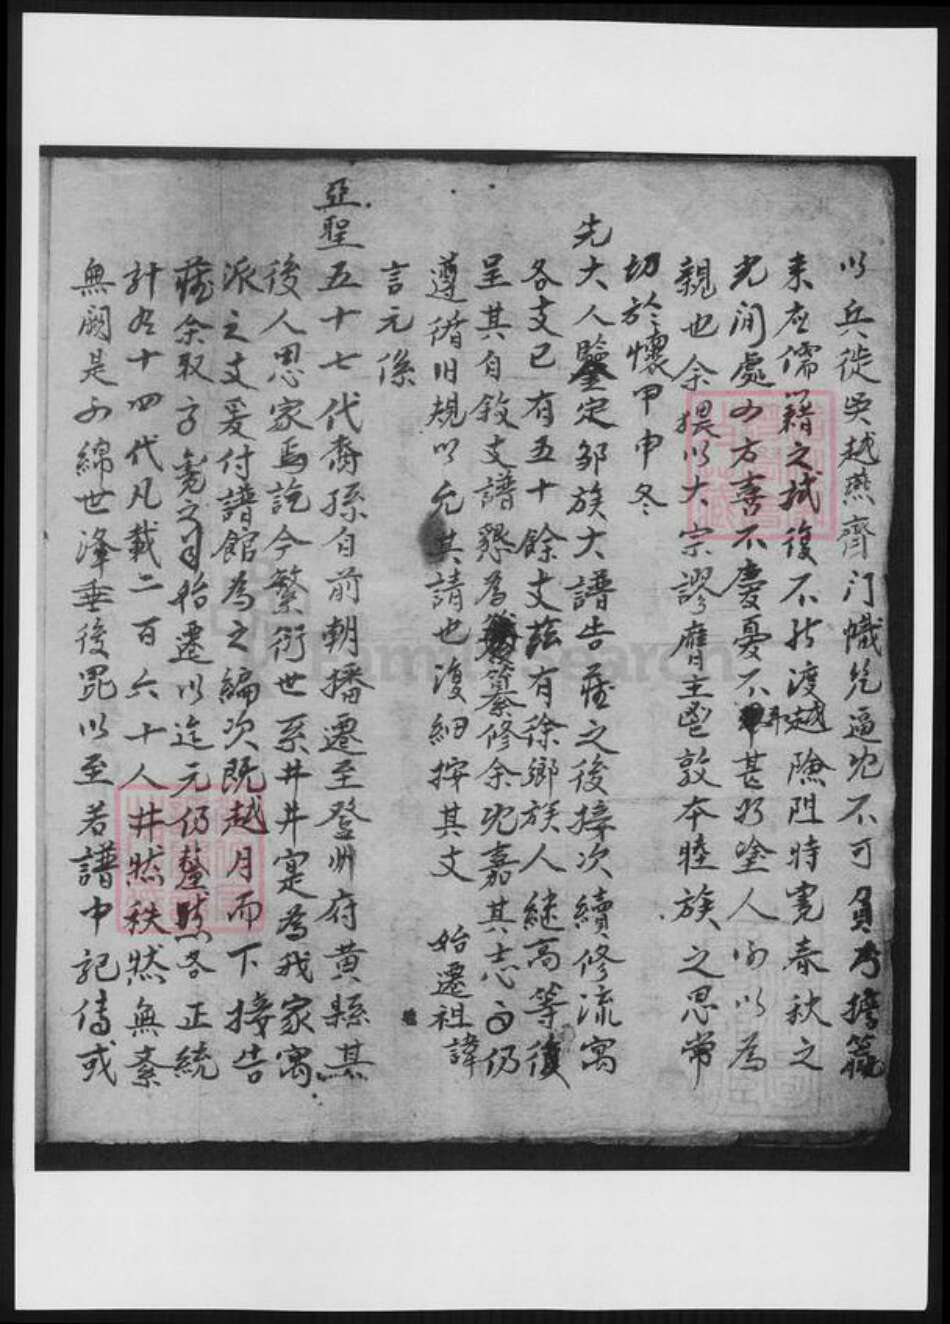 以兵徙吳越燕齊门幟兇逼允不可負乃擔簦
来在儒籍之拭復不於渡越險阻時寬春秋之
光间處少方喜不慶憂不甚於塗人所以為
親也余猥以大宗謬膺主鬯敦本睦族之思常
切於懷甲申冬
先大人鑒定邹族大譜告蕆之後接次續修流寓
各支已有五十餘支茲有徐鄉族人継高等復
呈其自敘支譜懇為纂修余允嘉其志而仍
遵循旧規以允其請也復細按其支 始遷祖諱
言元係
亞聖五十七代裔孫自前朝播遷至登州府黃縣其
後人思家焉訖今繁衍世系井井寔為我家寓
派之支爰付譜館為之編次既越月而下接告
蕆余取而覽之自始遷以迄元仍釐然各正統
計九十四代凡載二百六十人井然秩然無紊
無闕是以綿世澤垂後昆以至若譜中記傳或
FamilySearch